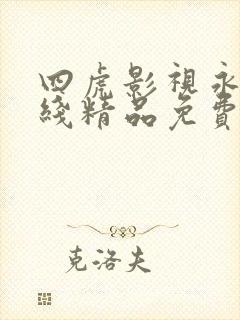 四虎影視永
綫精品免費
克洛夫